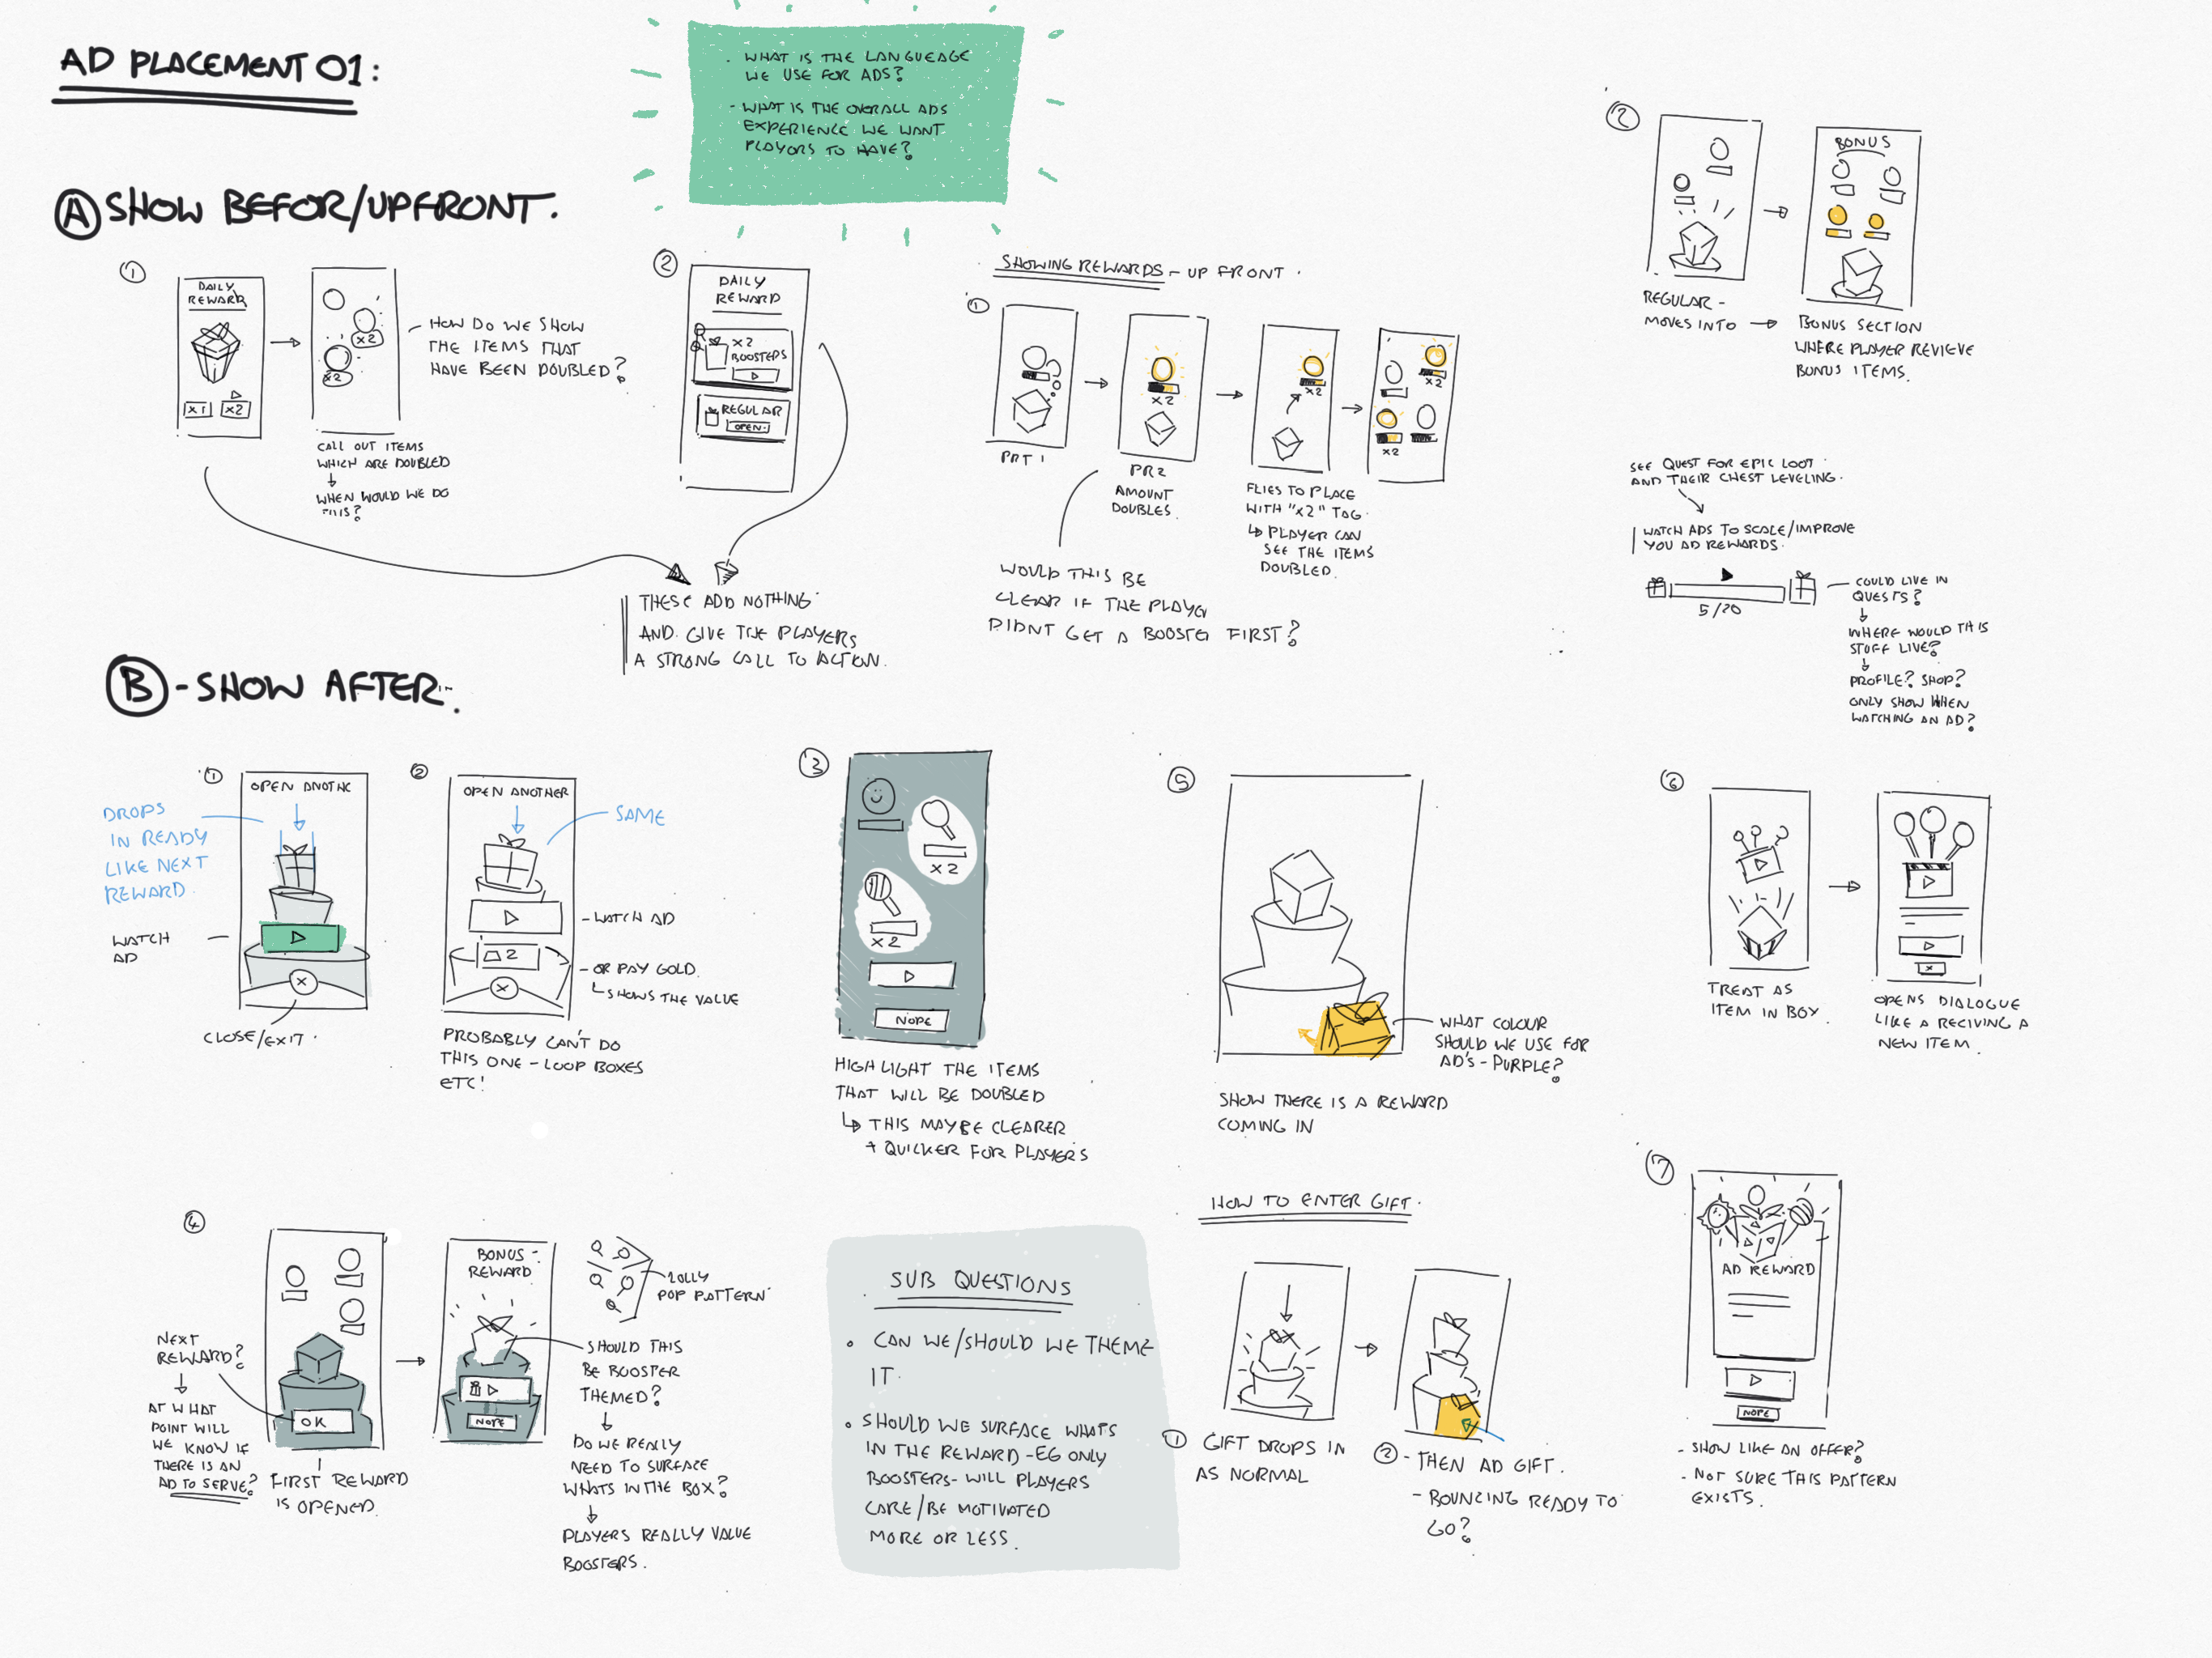 AD PLACEMENT 01:
. WHAT IS THE LANGUEAGE
WE USE FOR ADS?
- WHAT IS THE OVERALL ADS
EXPERIENCE WE WANT
PLAYORS TO HAVE?
A SHOW BEFOR/UPFRONT.
1
DAILY
REWARD
x1
x2
x2
x2
- HOW DO WE SHOW
THE ITEMS THAT
HAVE BEEN DOUBLED?
CALL OUT ITEMS
WHICH ARE DOUBLED
WHEN WOULD WE DO
THIS?
2
DAILY
REWARD
x2
BOOSTERS
REGULAR
OPEN
THESE ADD NOTHING
AND GIVE THE PLAYERS
A STRONG CALL TO ACTION.
SHOWING REWARDS - UP FRONT.
1
PRT 1
x2
PR2
AMOUNT
DOUBLES.
x2
FLIES TO PLACE
WITH "x2" TAG.
↳ PLAYER CAN
SEE THE ITEMS
DOUBLED.
x2
x2
WOULD THIS BE
CLEAR IF THE PLAYER
DIDNT GET A BOOSTER FIRST?
2
REGULAR -
MOVES INTO →
BONUS
BONUS SECTION
WHERE PLAYER REVIEVE
BONUS ITEMS.
SEE QUEST FOR EPIC LOOT
AND THEIR CHEST LEVELING.
WATCH ADS TO SCALE/IMPROVE
YOU AD REWARDS.
5/20
COULD LIVE IN
QUESTS?
WHERE WOULD THIS
STUFF LIVE?
PROFILE? SHOP?
ONLY SHOW WHEN
WATCHING AN AD?
B - SHOW AFTER:
1
OPEN ANOTHE
DROPS
IN READY
LIKE NEXT
REWARD.
WATCH
AD
X
CLOSE/EXIT
2
OPEN ANOTHER
SAME
- WATCH AD
2
- OR PAY GOLD.
↳ SHOWS THE VALUE
X
PROBABLY CAN'T DO
THIS ONE - LOOP BOXES
ETC!
3
x2
x2
NOPE
HIGHLIGHT THE ITEMS
THAT WILL BE DOUBLED
↳ THIS MAYBE CLEARER
+ QUICKER FOR PLAYERS
5
WHAT COLOUR
SHOULD WE USE FOR
AD'S - PURPLE?
SHOW THERE IS A REWARD
COMING IN
6
TREAT AS
ITEM IN BOX.
X
OPENS DIALOGUE
LIKE A RECIVING A
NEW ITEM.
4
NEXT
REWARD?
AT WHAT
POINT WILL
WE KNOW IF
THERE IS AN
AD TO SERVE?
OK
FIRST REWARD
IS OPENED.
BONUS -
REWARD
NOPE
LOLLY
POP PATTERN
SHOULD THIS
BE BOOSTER
THEMED?
DO WE REALLY
NEED TO SURFACE
WHATS IN THE BOX?
PLAYERS REALLY VALUE
BOOSTERS.
SUB QUESTIONS
• CAN WE/SHOULD WE THEME
IT.
• SHOULD WE SURFACE WHATS
IN THE REWARD - EG ONLY
BOOSTERS - WILL PLAYERS
CARE/BE MOTIVATED
MORE OR LESS.
HOW TO ENTER GIFT.
1 GIFT DROPS IN
AS NORMAL
2 - THEN AD GIFT.
- BOUNCING READY TO
GO?
7
AD REWARD
NOPE
- SHOW LIKE AN OFFER?
- NOT SURE THIS PATTERN
EXISTS.